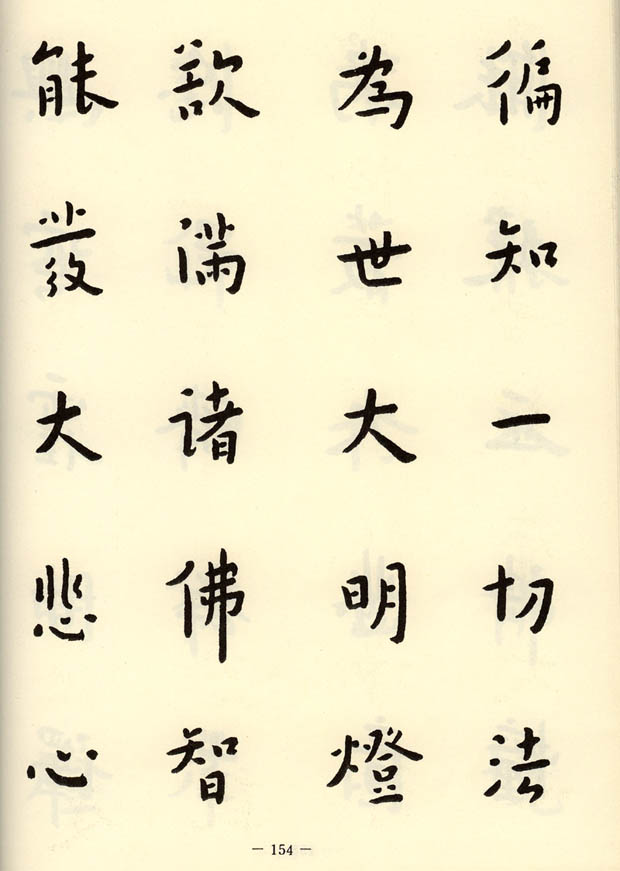 徧知一切法
為世大明燈
欲滿諸佛智
能發大悲心
— 154 —